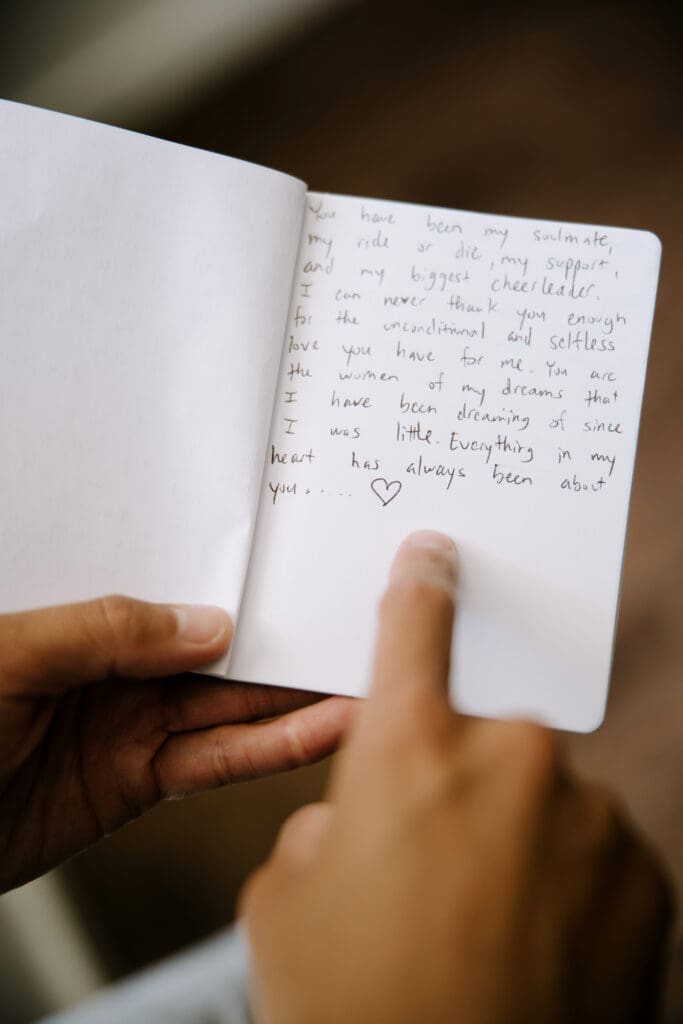 You have been my soulmate,
my ride or die, my support,
and my biggest cheerleader.
I can never thank you enough
for the unconditional and selfless
love you have for me. You are
the women of my dreams that
I have been dreaming of since
I was little. Everything in my
heart has always been about
you. . . . . ♡